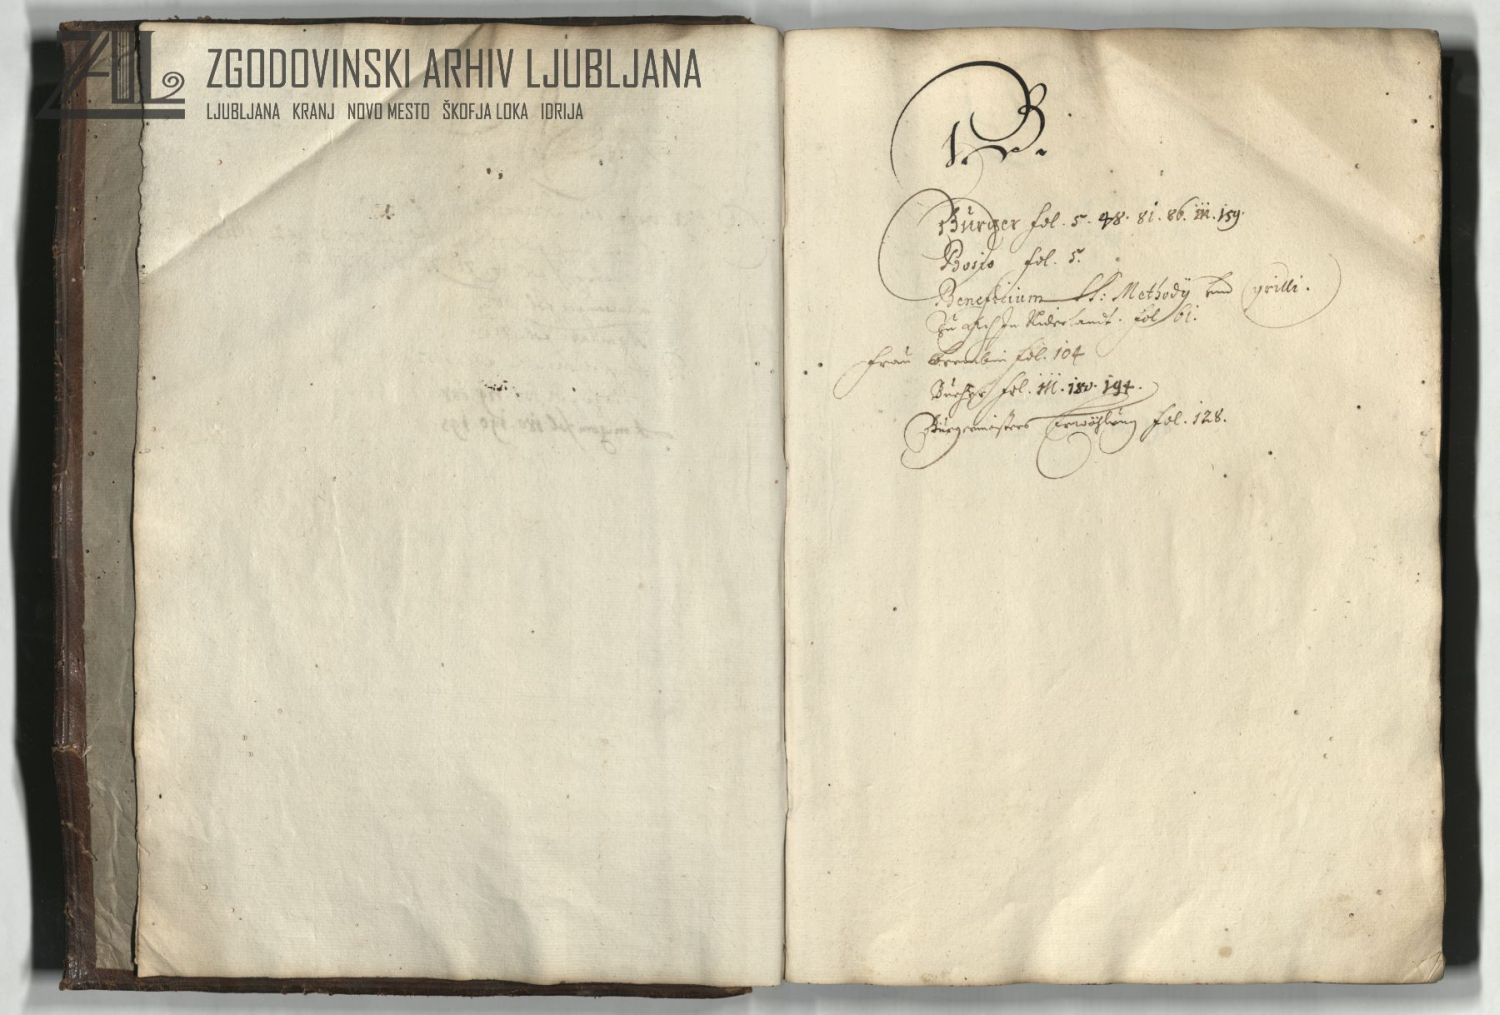 ZGODOVINSKI ARHIV LJUBLJANA
LJUBLJANA KRANJ NOVO MESTO ŠKOFJA LOKA IDRIJA
1. B.
Bürger fol. 5. 48. 81. 86. 111. 159.
Bosio fol. 5.
Beneficium SS: Methody und Cyrilli.
zu fol. 61.
Frau fol. 104
fol. 111. 180. 194.
Bürgermaisters Erwöhlung fol. 128.